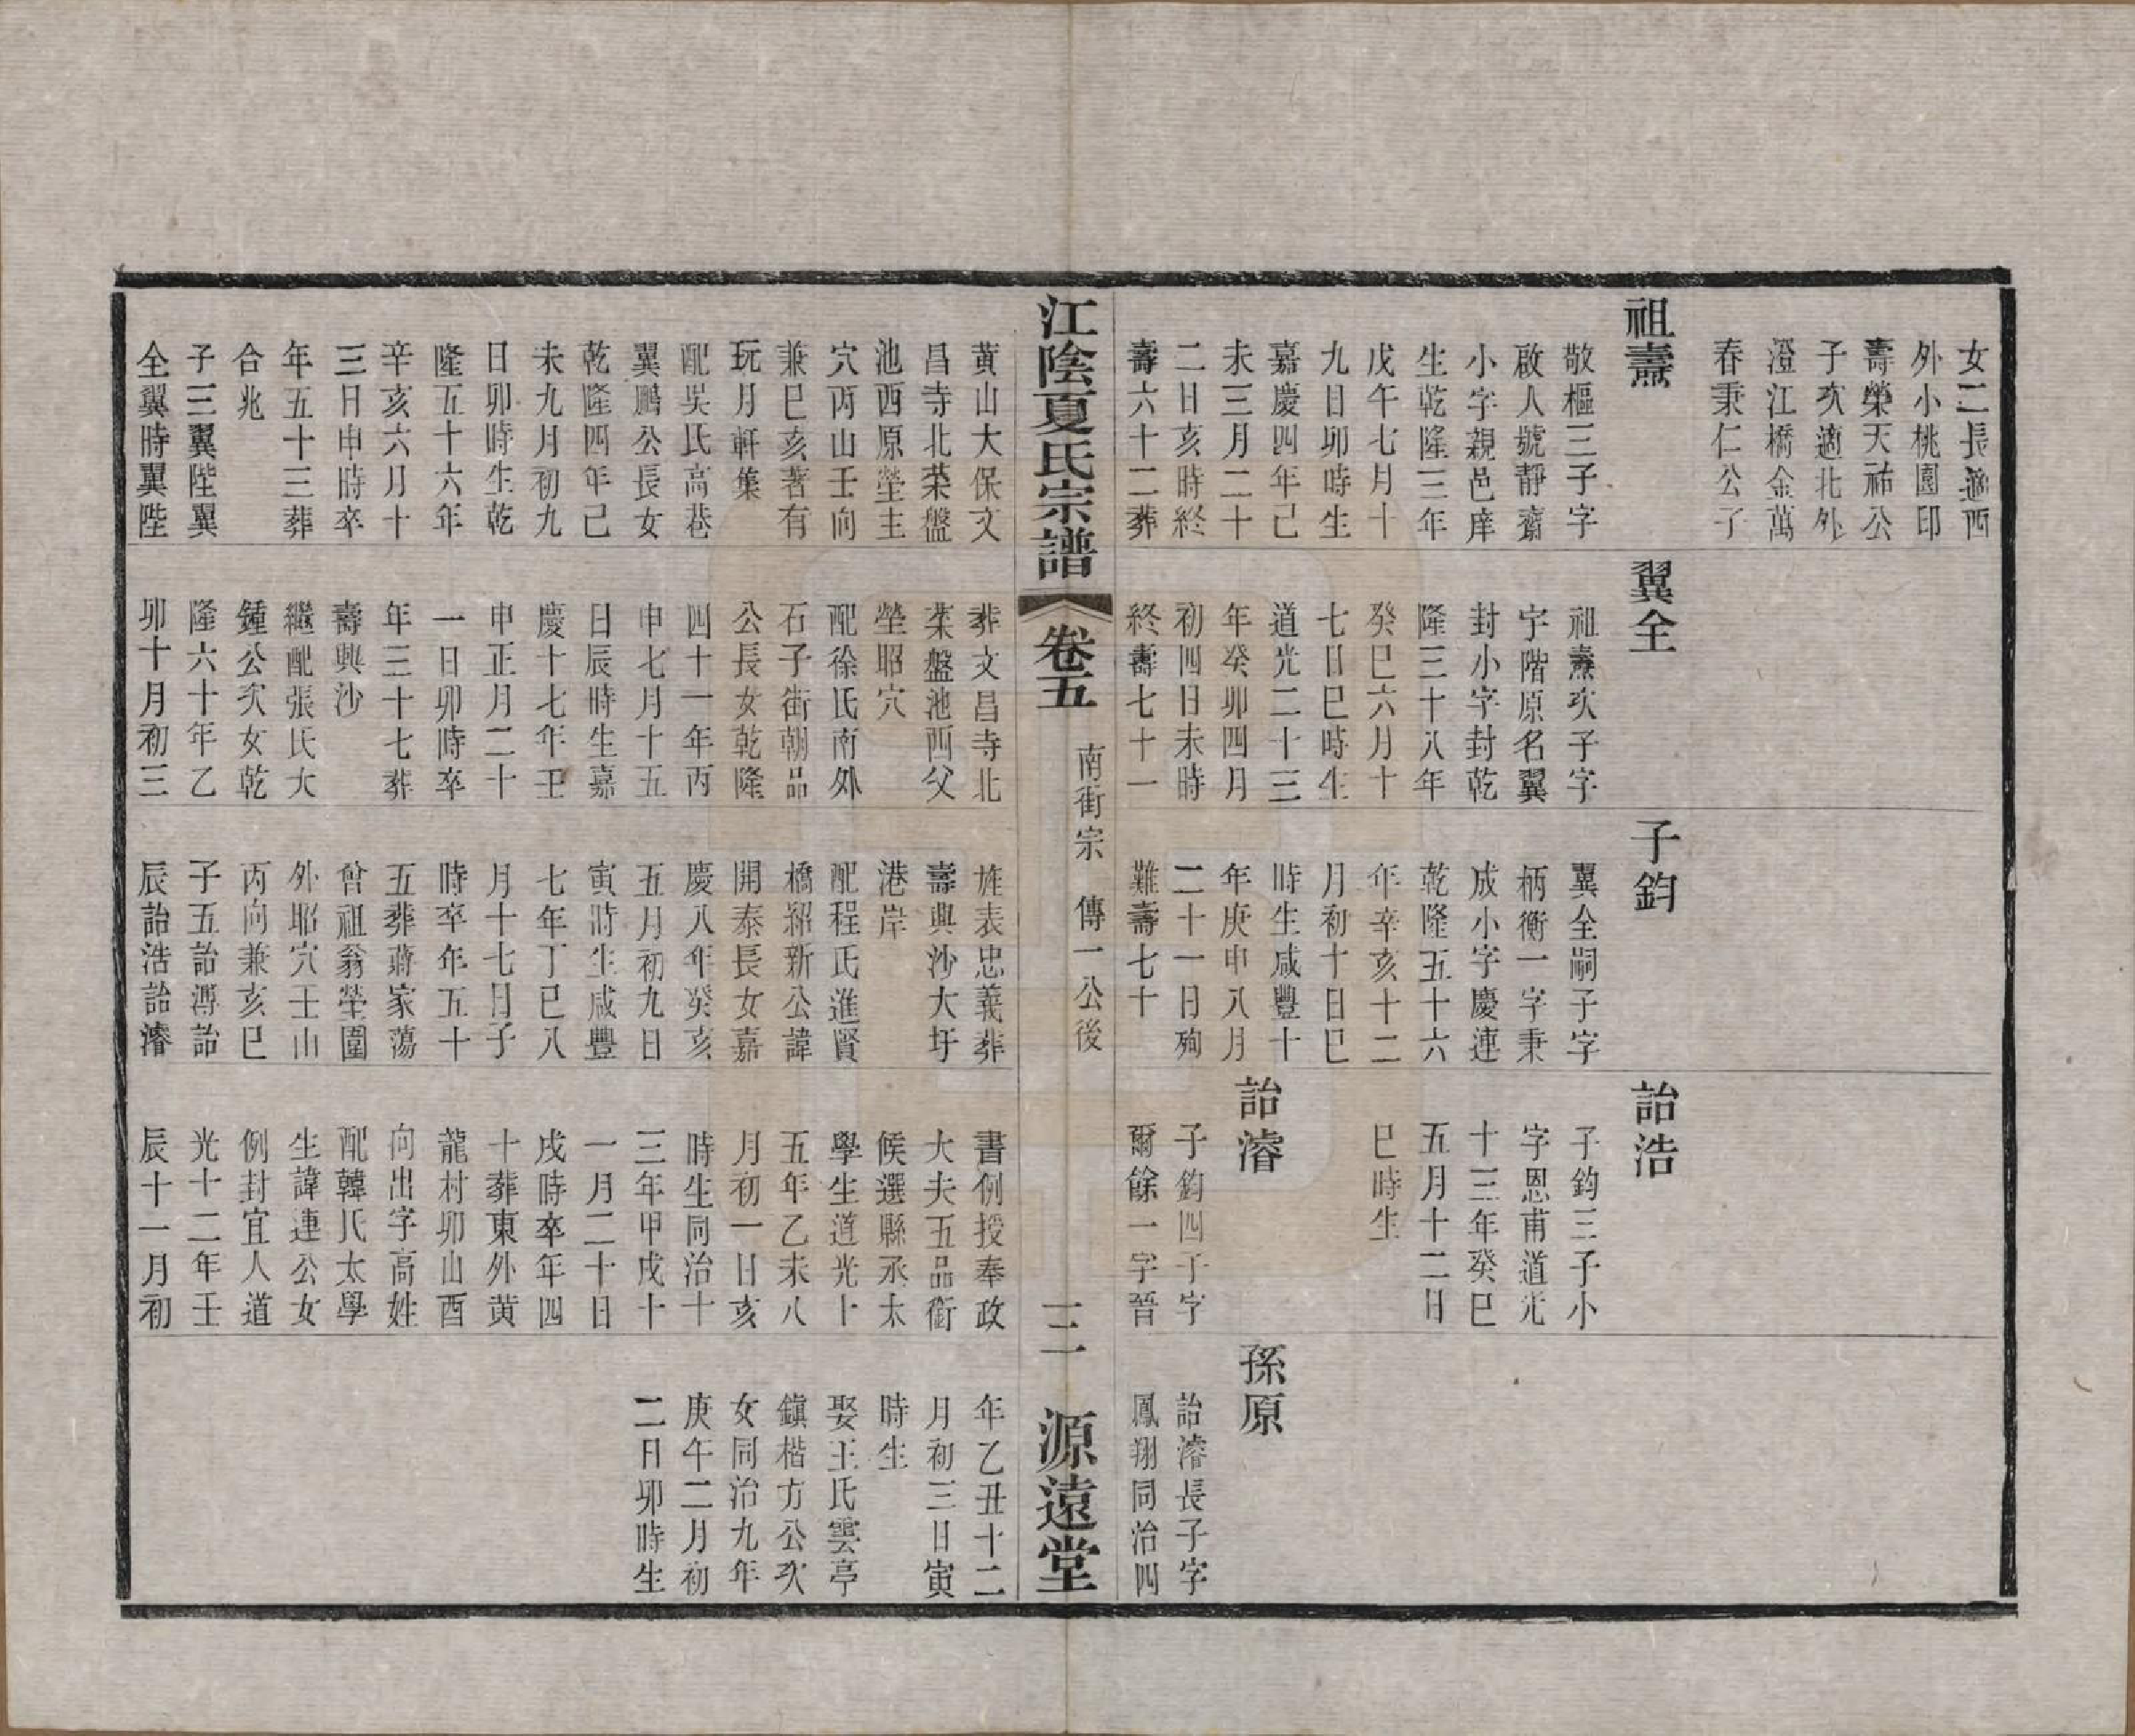 女二長適西
外小桃園印
壽榮天祐公
子次適北外
澄江橋金萬
春秉仁公子
祖燾
敬樞三子字
啟人號靜齋
小字親邑庠
生乾隆三年
戊午七月十
九日卯時生
嘉慶四年己
未三月二十
二日亥時終
壽六十二葬
翼全
祖燾次子字
宇階原名翼
封小字封乾
隆三十八年
癸巳六月十
七日巳時生
道光二十三
年癸卯四月
初四日未時
終壽七十一
子鈞
翼全嗣子字
柄衡一字秉
成小字慶連
乾隆五十六
年辛亥十二
月初十日巳
時生咸豐十
年庚申八月
二十一日殉
難壽七十
詒浩
子鈞三子小
字恩甫道光
十三年癸巳
五月十二日
巳時生
詒濬
子鈞四子字
爾餘一字晉
孫原
詒濬長子字
鳳翔同治四
江陰夏氏宗譜
卷五
南街宗 傳一公後
三一
源遠堂
黃山大保文
昌寺北菜盤
池西原塋主
穴丙山壬向
兼巳亥著有
玩月軒集
配吳氏高巷
翼鵬公長女
乾隆四年己
未九月初九
日卯時生乾
隆五十六年
辛亥六月十
三日申時卒
年五十三葬
合兆
子三翼陛翼
全翼時翼陛
葬文昌寺北
菜盤池西父
塋昭穴
配徐氏南外
石子街朝品
公長女乾隆
四十一年丙
申七月十五
日辰時生嘉
慶十七年壬
申正月二十
一日卯時卒
年三十七葬
壽興沙
繼配張氏大
鍾公次女乾
隆六十年乙
卯十月初三
旌表忠義葬
壽興沙大圩
港岸
配程氏進賢
橋紹新公諱
開泰長女嘉
慶八年癸亥
五月初九日
寅時生咸豐
七年丁巳八
月十七日子
時卒年五十
五葬蔣家蕩
曾祖翁塋圍
外昭穴壬山
丙向兼亥巳
子五詒溥詒
辰詒浩詒濬
書例授奉政
大夫五品銜
候選縣丞太
學生道光十
五年乙未八
月初一日亥
時生同治十
三年甲戌十
一月二十日
戌時卒年四
十葬東外黃
龍村卯山酉
向出字高姓
配韓氏太學
生諱連公女
例封宜人道
光十二年壬
辰十一月初
年乙丑十二
月初三日寅
時生
娶王氏雲亭
鎮楷方公次
女同治九年
庚午二月初
二日卯時生